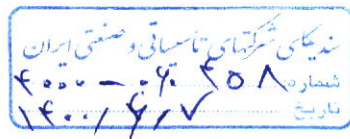 سندیکای شرکتهای تأسیساتی و صنعتی ایران
شماره ۴۰۰۰ – ۰۶ ۴۵۰۸
تاریخ ۱۴۰۰/۶/۷